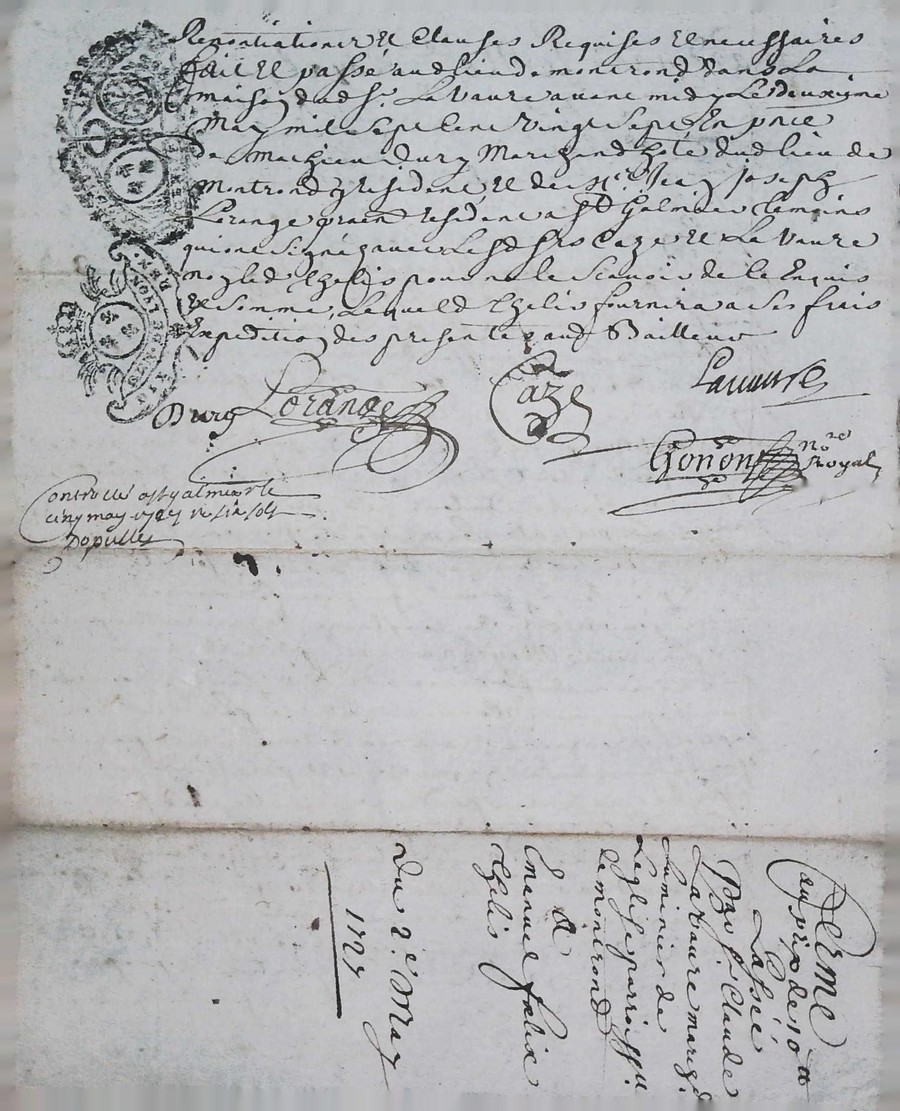 Renontiations et Clauses Requises et necessaires
fait et passé aud lieu de montrond dans La
maison dud sr. La Vaure avant midy Le deuxieme
May mil sept Cent Vingt sept En pnce
de Mathieu Dury Marchand hote dud lieu de
montrond y residant et de Me Jean Joseph
Lorange praen residant a St Galmier temoins
qui ont signé avec Les srs Caze et La Vaure
non led Thelis pour ne le scavoir de le Enquis
et sommé, Lequel d Thelis fournira a ses frais
Expedition des presentes aud Bailleur
Dury Lorange Caze Lavaure
Gonon nore Royal
Controllé a st galmier le
cinq may 1727
Dopulle
REN. DE LYON
ferme
au prix de 10
La sée
Par sr Claude
La Vaure march
Luminier de
Leglise parroissu.
de montrond
a
Emanuel felix
Thelis
Du 2e May
1727